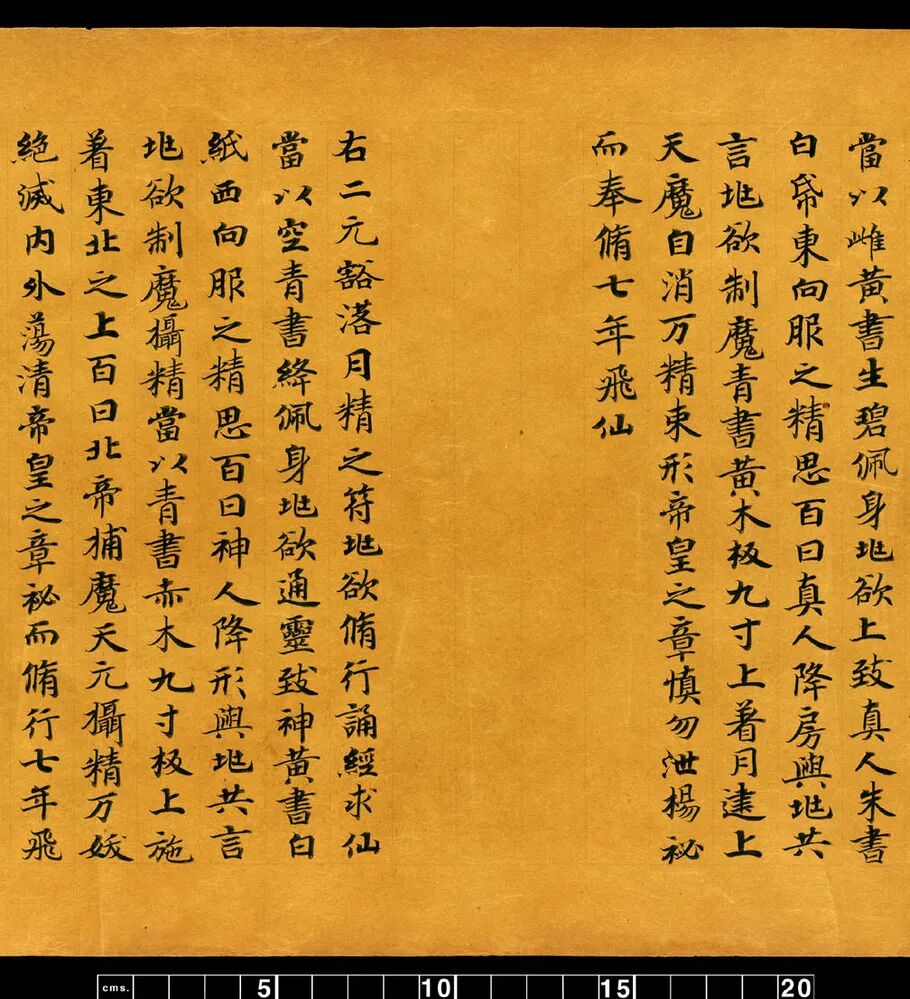 當以雌黃書生碧佩身地欲上致真人朱書
白帋東向服之精思百日真人降房與地共
言地欲制魔青書黃木板九寸上著月建上
天魔自消万精束形帝皇之章慎勿泄揚祕
而奉脩七年飛仙
右二元豁落月精之符地欲脩行誦經求仙
當以空青書絳佩身地欲通靈致神黃書白
紙西向服之精思百日神人降形與地共言
地欲制魔攝精當以青書赤木九寸板上施
著東北之上百日北帝捕魔天元攝精万妖
絕滅内外蕩清帝皇之章祕而脩行七年飛
cms. 5 10 15 20